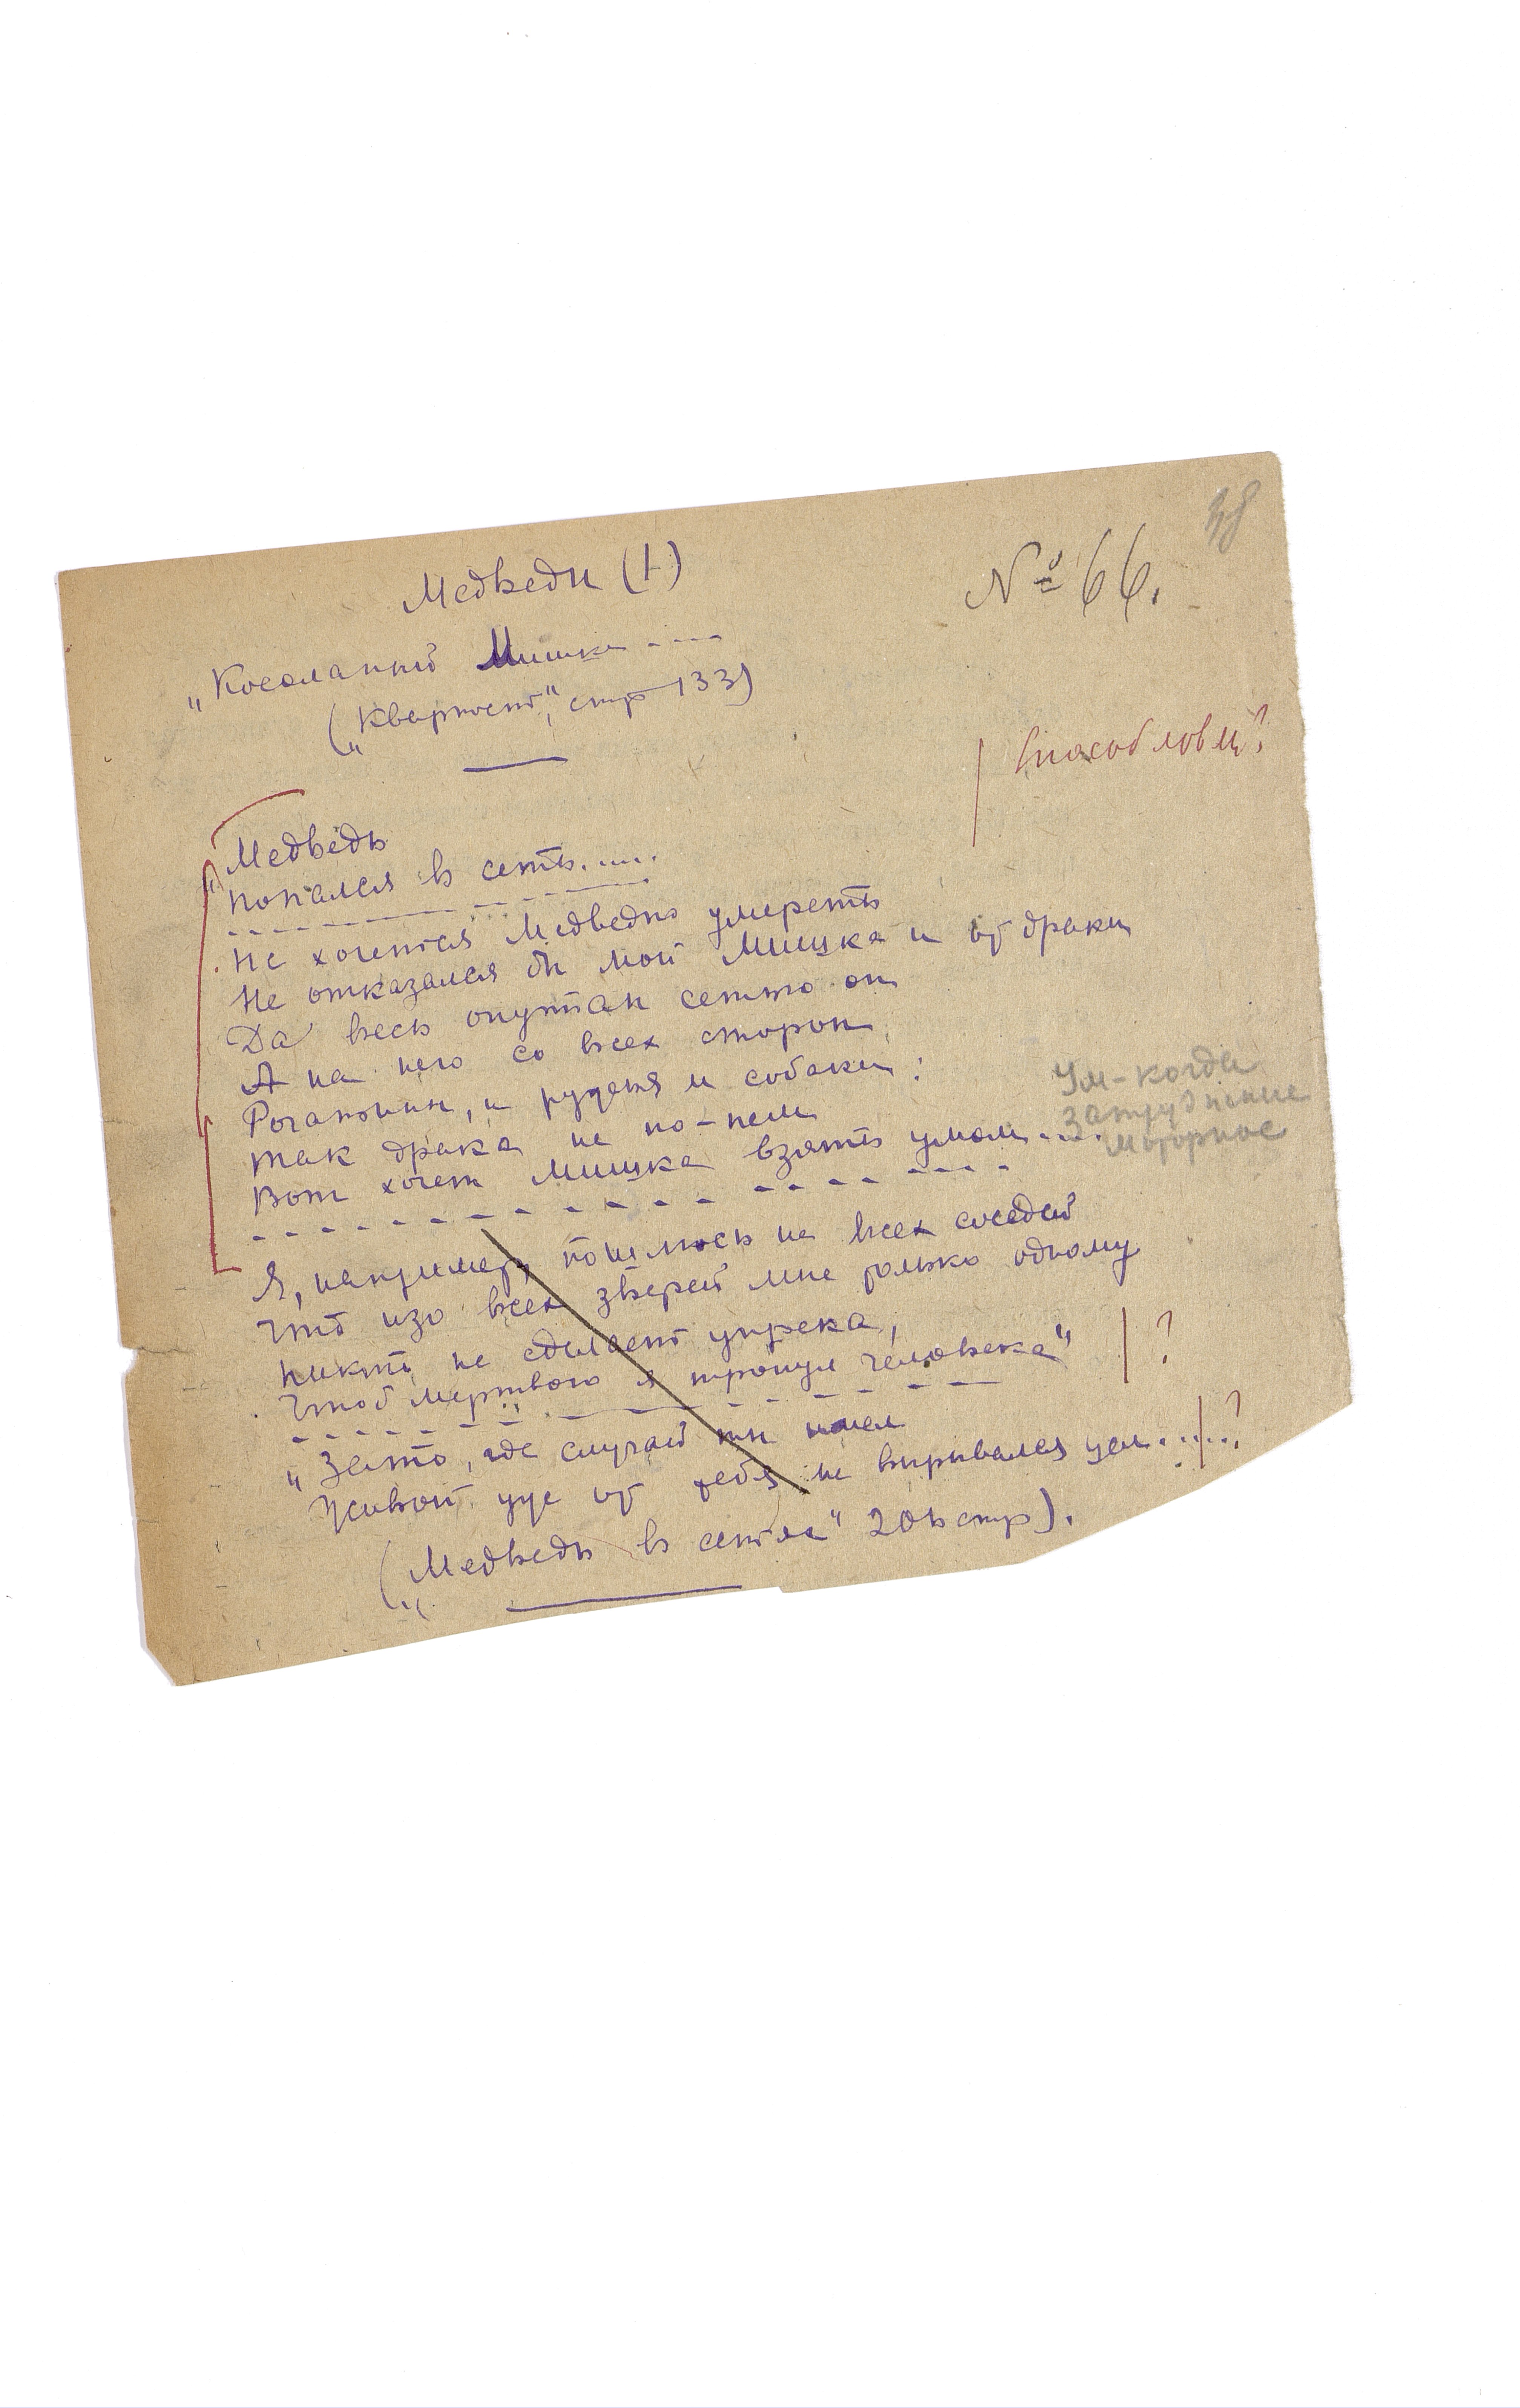 48
№ 66.
Медведи (1)
„Косолапый Мишка ----
(„Квартет", стр 133)
Способ ловли?
Медведь
„попался в сеть.....
Не хочется Медведю умереть
Не отказался бы мой Мишка и от драки
Да весь опутан сетью он
А на него со всех сторон
Рогатины, и ружья и собаки;
Так драка не по-нем
Вот хочет Мишка взять умом....
Ум - когда
затруднение
моторное
Я, например, пошлюсь на всех соседей
Что изо всех зверей мне только одному
Никто не сделает упрека,
Чтоб мертвого я тронул человека" ?
„Зато, где случай ты имел
Живой уже от тебя не вырывался цел.....?
(„Медведь в сетях" 206 стр).